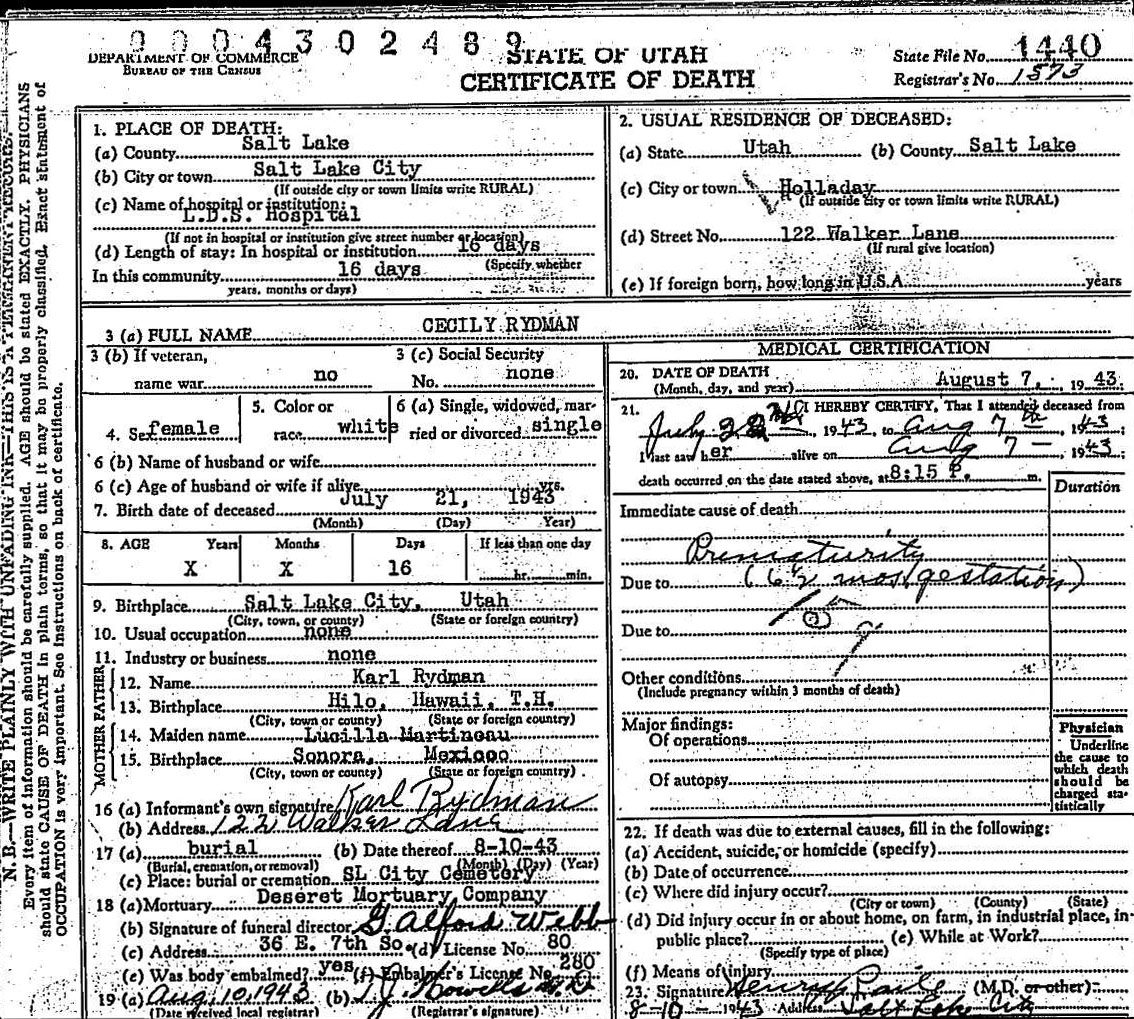 0004302489
DEPARTMENT OF COMMERCE
BUREAU OF THE CENSUS
STATE OF UTAH
CERTIFICATE OF DEATH
State File No. 1440
Registrar's No. 1573
N. B.—WRITE PLAINLY WITH UNFADING INK—THIS IS A PERMANENT RECORD.
Every item of information should be carefully supplied. AGE should be stated EXACTLY. PHYSICIANS
should state CAUSE OF DEATH in plain terms, so that it may be properly classified. Exact statement of
OCCUPATION is very important. See instructions on back of certificate.
1. PLACE OF DEATH:
(a) County Salt Lake
(b) City or town Salt Lake City
(If outside city or town limits write RURAL)
(c) Name of hospital or institution:
L.D.S. Hospital
(If not in hospital or institution give street number or location)
(d) Length of stay: In hospital or institution 16 days
(Specify whether
In this community 16 days
years, months or days)
2. USUAL RESIDENCE OF DECEASED:
(a) State Utah (b) County Salt Lake
(c) City or town Holladay
(If outside city or town limits write RURAL)
(d) Street No. 122 Walker Lane
(If rural give location)
(e) If foreign born, how long in U.S.A. years
3 (a) FULL NAME CECILY RYDMAN
3 (b) If veteran,
name war no
3 (c) Social Security
No. none
4. Sex female
5. Color or
race white
6 (a) Single, widowed, mar-
ried or divorced single
6 (b) Name of husband or wife
6 (c) Age of husband or wife if alive yrs.
7. Birth date of deceased July 21, 1943
(Month) (Day) Year)
8. AGE Years Months Days If less than one day
X X 16 hr. min.
9. Birthplace Salt Lake City, Utah
(City, town, or county) (State or foreign country)
10. Usual occupation none
11. Industry or business none
FATHER
12. Name Karl Rydman
13. Birthplace Hilo, Hawaii, T.H.
(City, town or county) (State or foreign country)
MOTHER
14. Maiden name Lucilla Martineau
15. Birthplace Sonora, Mexicoo
(City, town or county) (State or foreign country)
16 (a) Informant's own signature Karl Rydman
(b) Address 122 Walker Lane
17 (a) burial (b) Date thereof 8-10-43
(Burial, cremation, or removal) (Month) (Day) (Year)
(c) Place: burial or cremation SL City Cemetery
18 (a) Mortuary Deseret Mortuary Company
(b) Signature of funeral director G. Alford Webb
(c) Address 36 E. 7th So. (d) License No. 80
(e) Was body embalmed? yes (f) Embalmer's License No. 280
19 (a) Aug. 10, 1943 (b) T.J. Howells MD
(Date received local registrar) (Registrar's signature)
MEDICAL CERTIFICATION
20. DATE OF DEATH
(Month, day, and year) August 7, 1943.
21. I HEREBY CERTIFY, That I attended deceased from
July 22, 1943, to Aug 7th, 1943;
I last saw her alive on Aug 7 — 1943;
death occurred on the date stated above, at 8:15 P. m.
Duration
Immediate cause of death
Prematurity
Due to (6½ mos gestation)
Due to
Other conditions
(Include pregnancy within 3 months of death)
Major findings:
Of operations
Of autopsy
Physician
Underline
the cause to
which death
should be
charged sta-
tistically
22. If death was due to external causes, fill in the following:
(a) Accident, suicide, or homicide (specify)
(b) Date of occurrence
(c) Where did injury occur?
(City or town) (County) (State)
(d) Did injury occur in or about home, on farm, in industrial place, in
public place? (e) While at Work?
(Specify type of place)
(f) Means of injury
23. Signature Henry Raile (M.D. or other)
8-10-1943 Address Salt Lake City